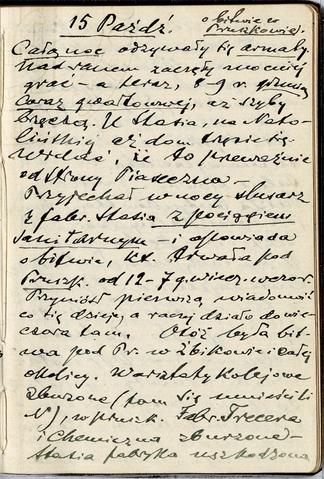 15 Paźdź.
o bitwie
Pruszkowie.
Całą noc odzywały się armaty.
Nad ranem zaczęły mocniej
grać – a teraz, 8 g. r. grzmią
coraz gwałtowniej, aż szyby
brzęczą. U Stasia, na Nato-
lińskiej aż dom trzęsie się.
Widać, że to przeważnie
od strony Piaseczna –
Przyjechał w nocy ślusarz
z fabr. Stasia z pociągiem
sanitarnym – i opowiada
o bitwie, kt. trwała pod
Pruszk. od 12 – 7 g. wiecz. wczor.
Przyniósł pierwszą wiadomość
co się dzieje, a raczej działo do wie-
czora tam. Otóż była bit-
wa pod Pr. w Żbikowie i całej
okolicy. Warsztaty kolejowe
zburzone (tam się umieścili
N), w Pruszk. Fabr. Troetzera
i chemiczna zburzone –
Stasia fabryka uszkodzona